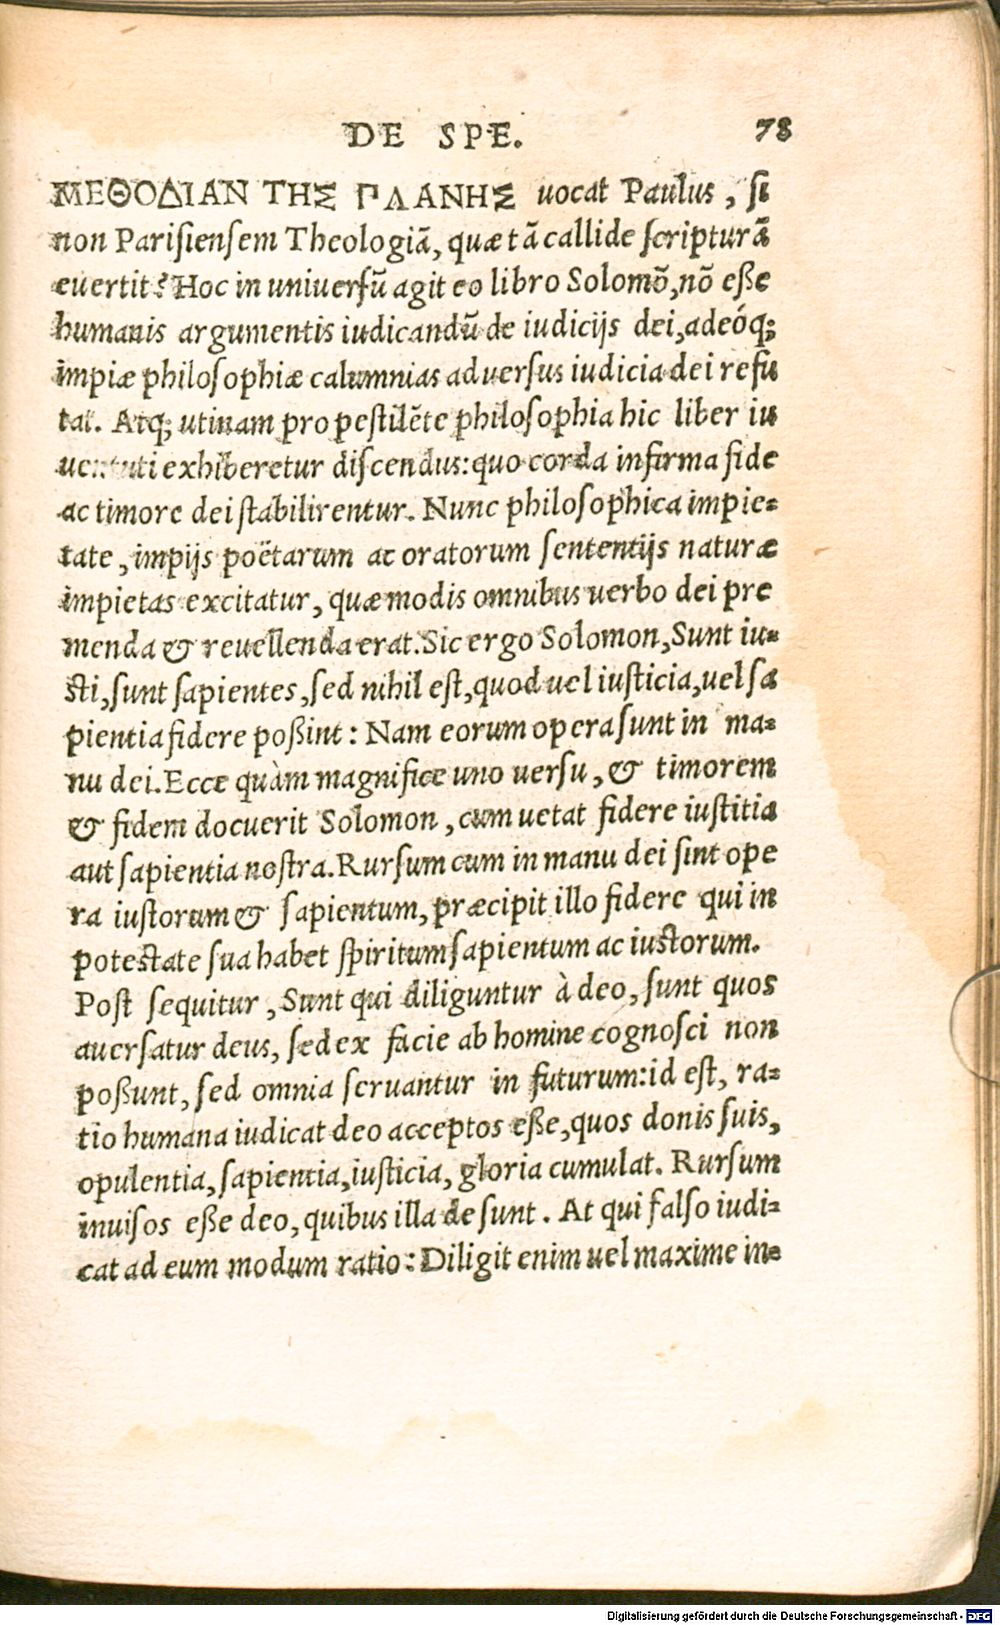 DE SPE. 78
ΜΕΘΟΔΙΑΝ ΤΗΣ ΠΛΑΝΗΣ uocat Paulus, si
non Parisiensem Theologiã, quæ tã callide scripturã
euertit? Hoc in uniuersũ agit eo libro Solomõ, nõ eße
humanis argumentis iudicandũ de iudicijs dei, adeóq;
impiæ philosophiæ calumnias aduersus iudicia dei refu
tat. Atq; utinam pro pestilẽte philosophia hic liber iu
uentuti exhiberetur discendus: quo corda infirma fide
ac timore dei stabilirentur. Nunc philosophica impie-
tate, impijs poëtarum ac oratorum sententijs naturæ
impietas excitatur, quæ modis omnibus uerbo dei pre
menda & reuellenda erat. Sic ergo Solomon, Sunt iu-
sti, sunt sapientes, sed nihil est, quod uel iusticia, uel sa
pientia fidere poßint: Nam eorum opera sunt in ma-
nu dei. Ecce quàm magnifice uno uersu, & timorem
& fidem docuerit Solomon, cum uetat fidere iustitia
aut sapientia nostra. Rursum cum in manu dei sint ope
ra iustorum & sapientum, præcipit illo fidere qui in
potestate sua habet spiritum sapientum ac iustorum.
Post sequitur, Sunt qui diliguntur à deo, sunt quos
auersatur deus, sed ex facie ab homine cognosci non
poßunt, sed omnia seruantur in futurum: id est, ra-
tio humana iudicat deo acceptos eße, quos donis suis,
opulentia, sapientia, iusticia, gloria cumulat. Rursum
inuisos eße deo, quibus illa desunt. At qui falso iudi-
cat ad eum modum ratio: Diligit enim uel maxime in-
Digitalisierung gefördert durch die Deutsche Forschungsgemeinschaft - DFG